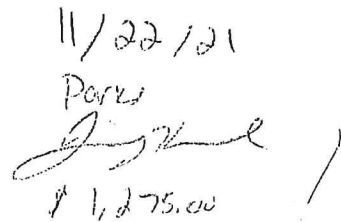 11/22/21
Parks
$ 1,275.00